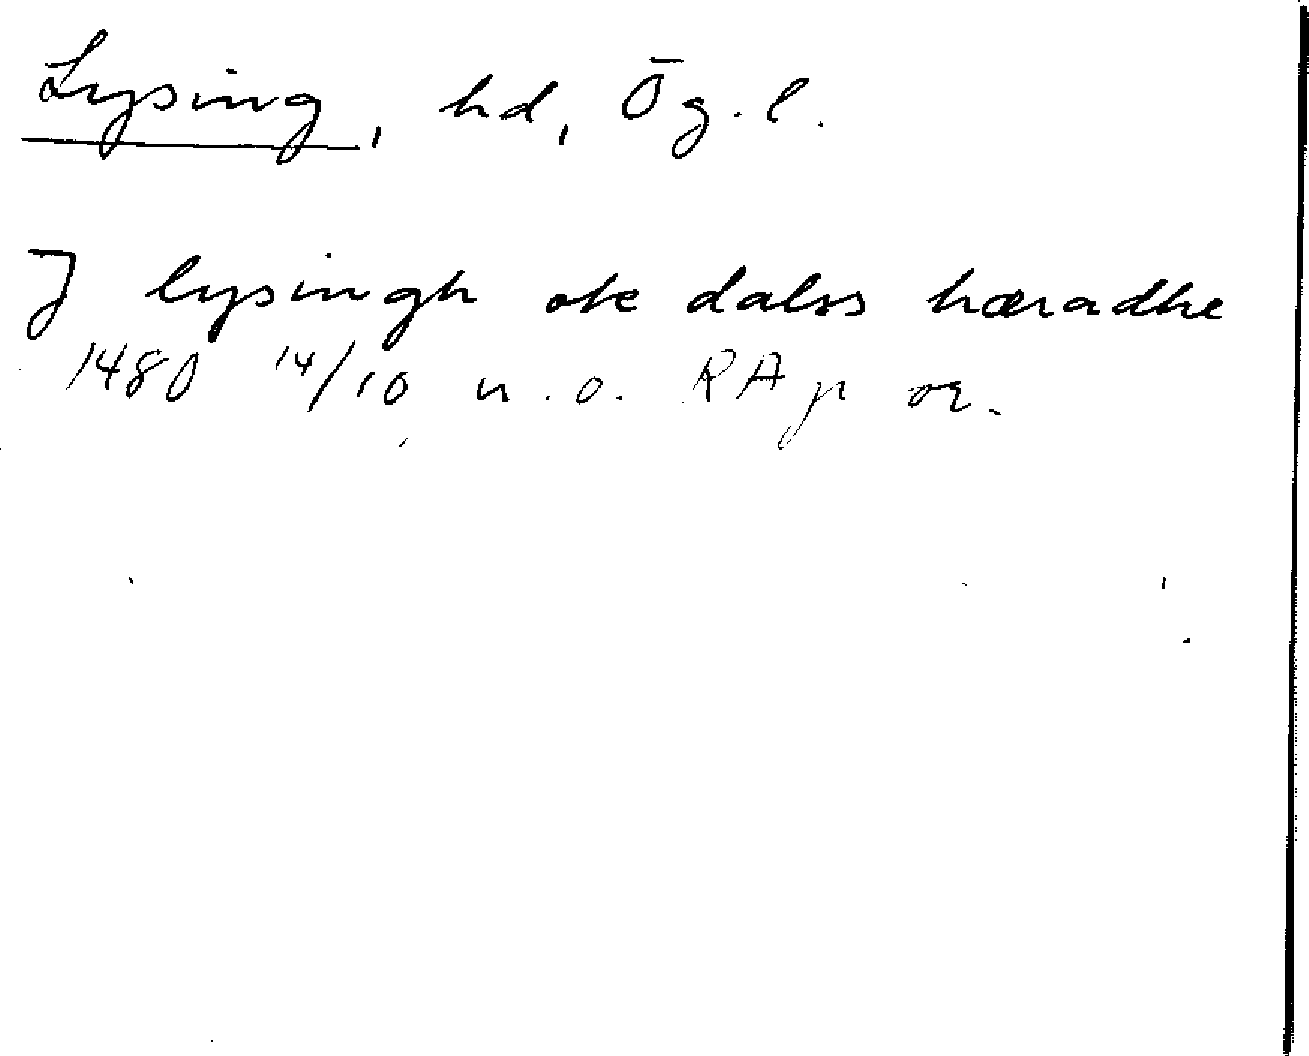 Lysing, hd, Ög. l.
J lysingh oke dalss hæradhe
1480 14/10 u. o. RAp or.